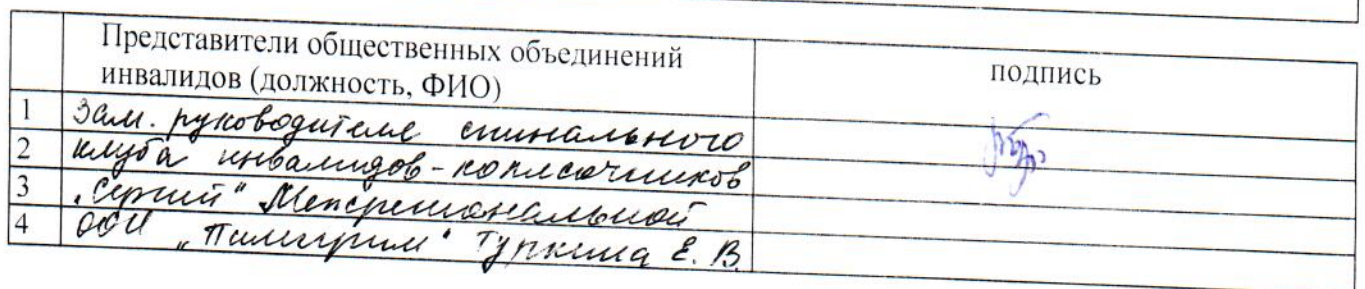 Представители общественных объединений
инвалидов (должность, ФИО)
подпись
1 Зам. руководителя спинального
2 клуба инвалидов-колясочников
3 Межрегиональной
4 ООИ „Пилигрим“ Туркина Е. В.